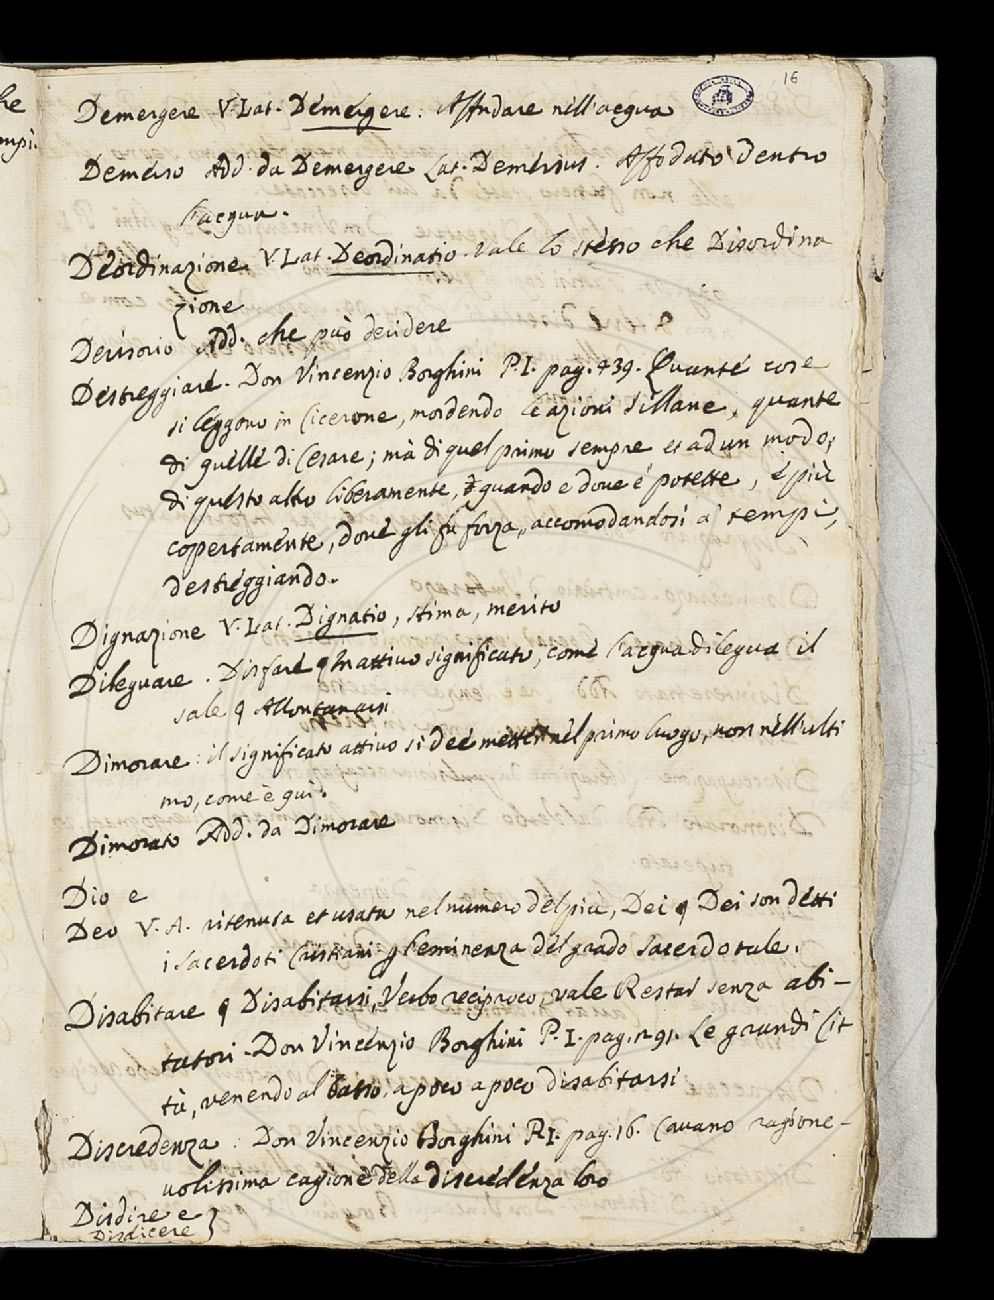 16
he
mpi.
Demergere V. Lat. Demergere: Affondare nell'acqua
Demerso Add. da Demergere Lat. Demersus. Affodato dentro
l'acqua.
Deordinazione V. Lat. Deordinatio. vale lo stesso che Disordina
zione
Decisorio Add. che può decidere
Destreggiare. Don Vincenzio Borghini P. I. pag. 439. Quante cose
si leggono in Cicerone, mordendo le azioni Sillane, quante
di quelle di Cesare; mà di quel primo sempre et ad un modo;
di questo altro liberamente, quando e dove è potette, è più
copertamente, dove gli fu forza, accomodandosi a' tempi,
destreggiando.
Dignazione V. Lat. Dignatio, stima, merito
Dileguare. Disfare in attivo significato, come l'acqua dilegua il
sale q Allontanarsi
Dimorare: il significato attivo si deè metter nel primo luogo, non nell'ulti
mo, come è quì.
Dimorato Add. da Dimorare
Dio e
Deo V. A. ritenuta et usata nel numero del più, Dei q Dei son detti
i sacerdoti Cristiani p l'eminenza del grado sacerdotale.
Disabitare q Disabitarsi, Verbo reciproco, vale Restar senza abi-
tatori. Don Vincenzio Borghini P. I. pag. 291. Le grandi Cit
tà, venendo al basso, a poco a poco disabitarsi
Discredenza: Don Vincenzio Borghini P. I. pag. 16. Cavano ragione-
volissima cagione della discredenza loro
Disdire e
Disdicere }